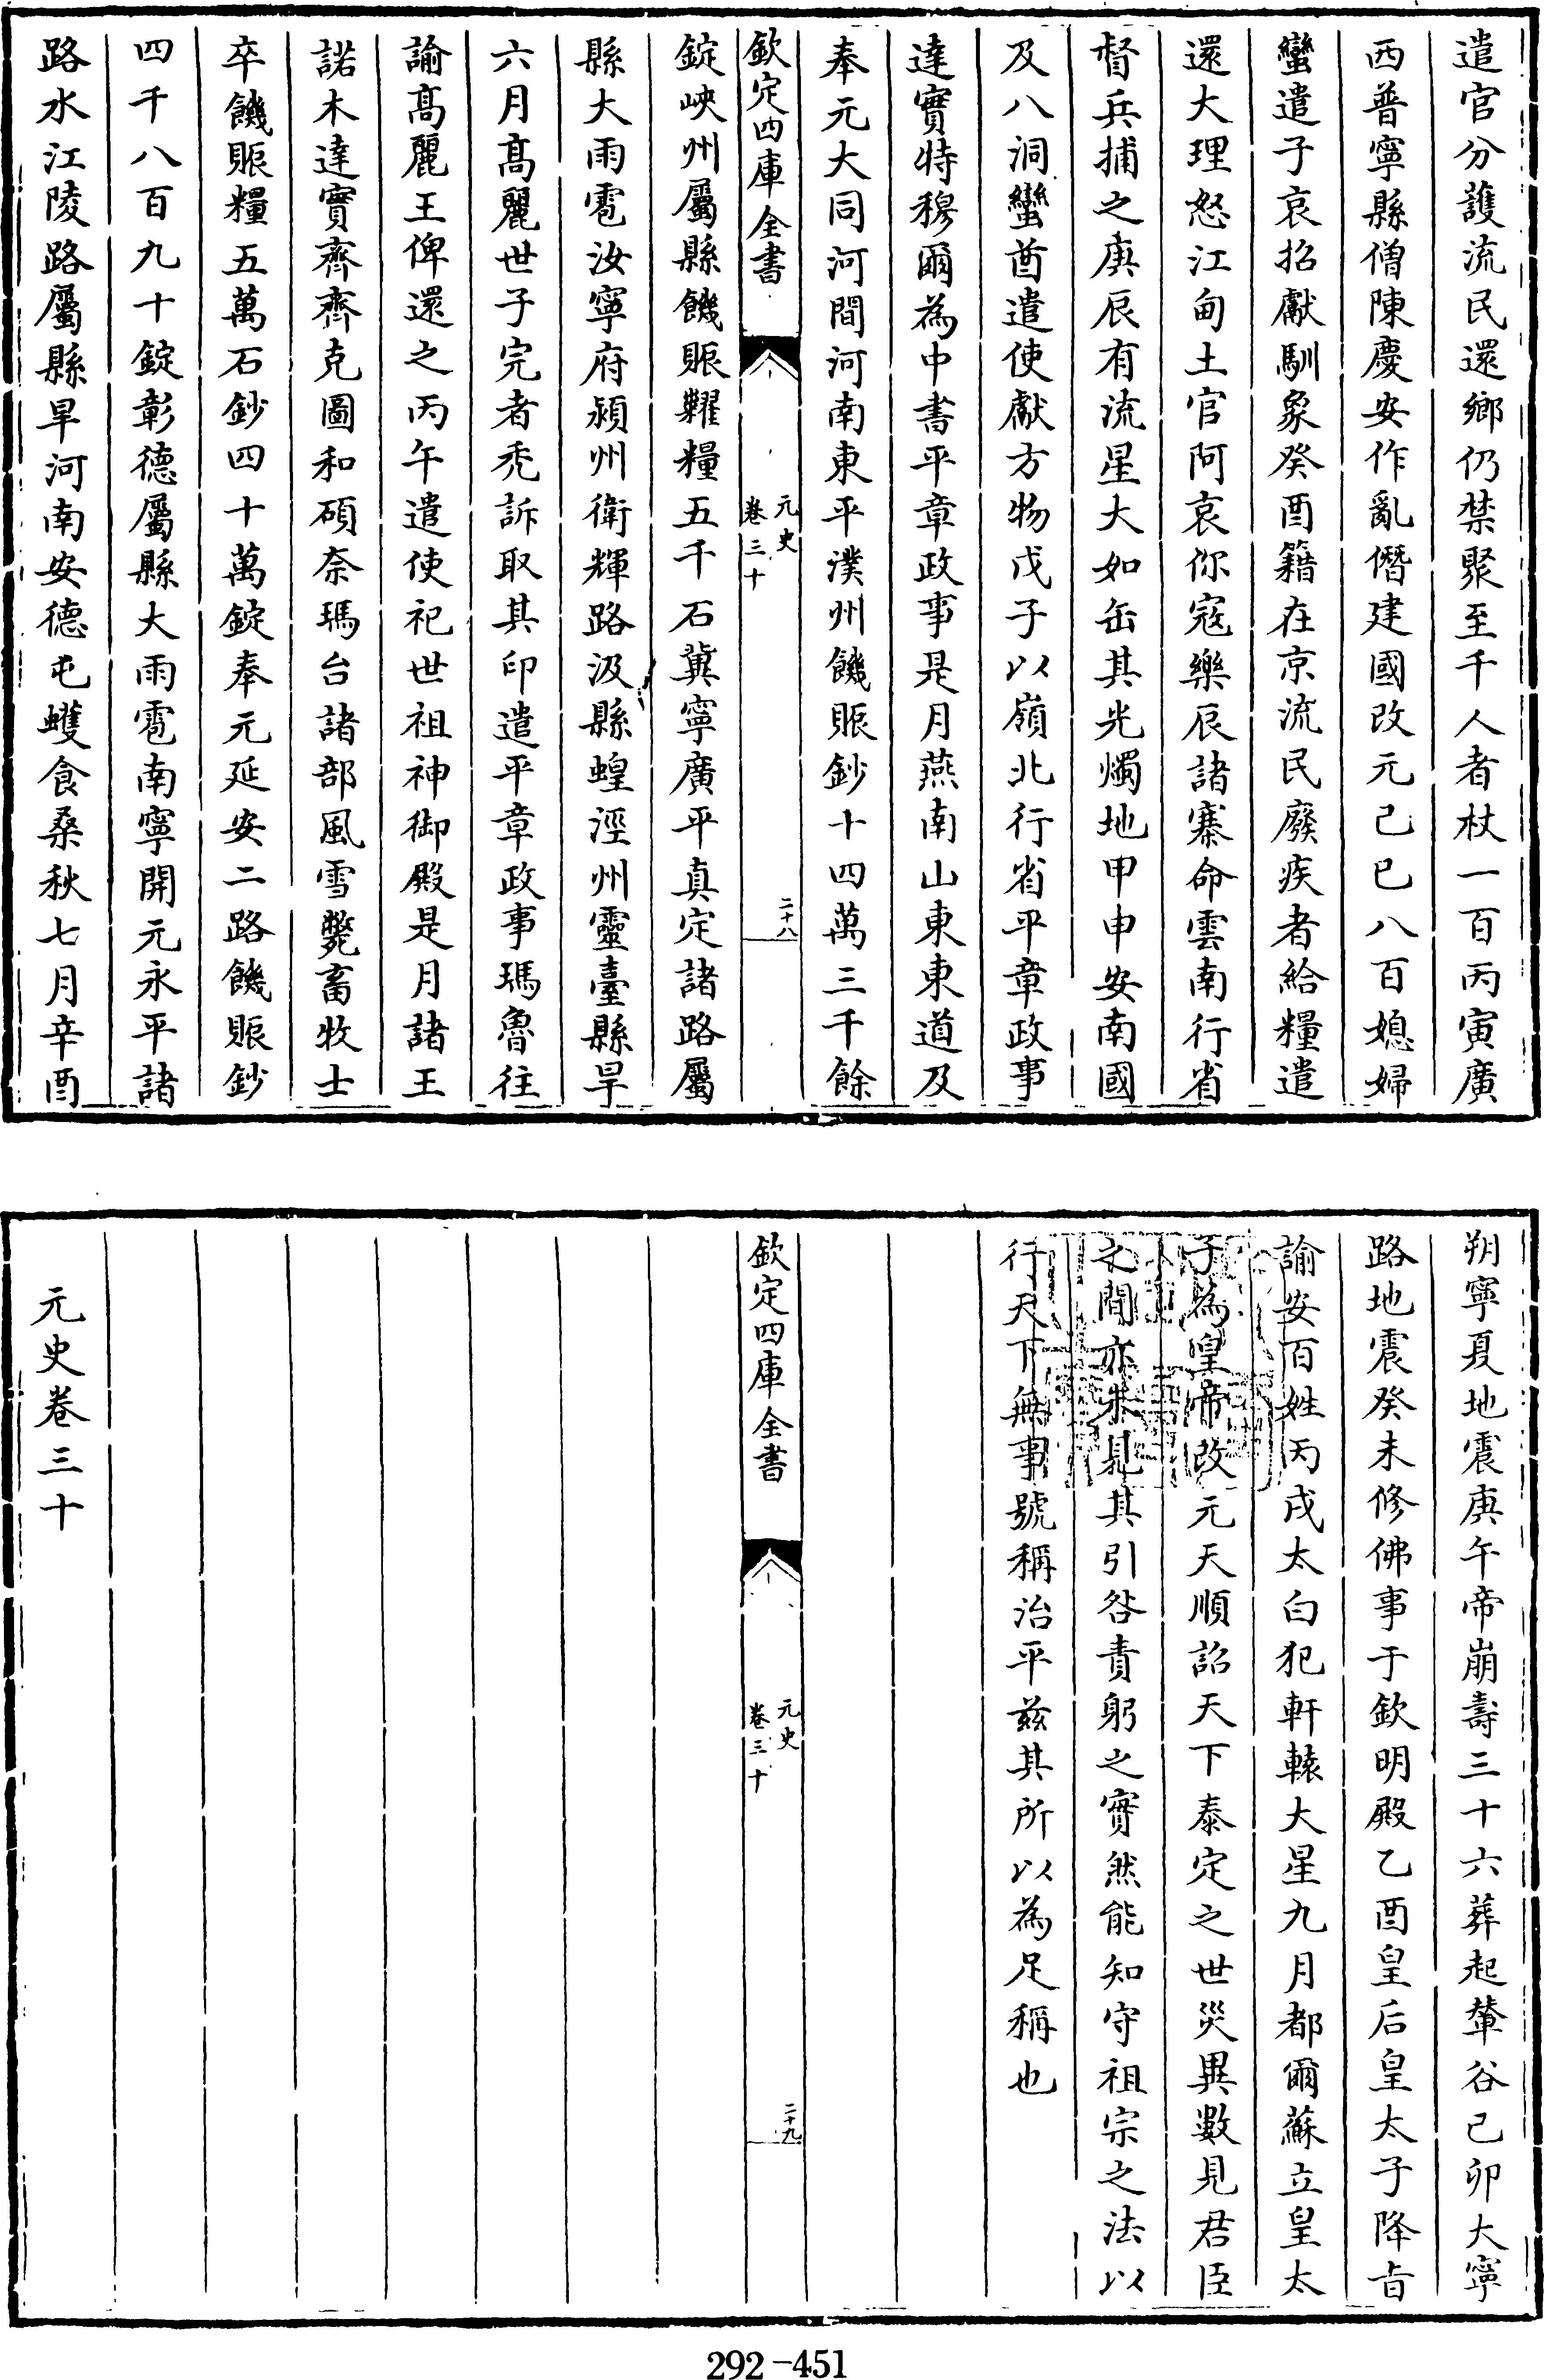 遣官分護流民還鄉仍禁聚至千人者杖一百丙寅廣
西普寧縣僧陳慶安作亂僭建國改元己巳八百媳婦
蠻遣子哀招獻馴象癸酉籍在京流民廢疾者給糧遣
還大理怒江甸土官阿哀你寇樂辰諸寨命雲南行省
督兵捕之庚辰有流星大如缶其光燭地甲申安南國
及八洞蠻酋遣使獻方物戊子以嶺北行省平章政事
達實特穆爾為中書平章政事是月燕南山東東道及
奉元大同河間河南東平濮州饑賑鈔十四萬三千餘
欽定四庫全書
元史
卷三十
二十八
錠峽州屬縣饑賑糶糧五千石冀寧廣平真定諸路屬
縣大雨雹汝寧府潁州衛輝路汲縣蝗涇州靈臺縣旱
六月高麗世子完者禿訴取其印遣平章政事瑪魯往
諭高麗王俾還之丙午遣使祀世祖神御殿是月諸王
諾木達實齊齊克圖和碩奈瑪台諸部風雪斃畜牧士
卒饑賑糧五萬石鈔四十萬錠奉元延安二路饑賑鈔
四千八百九十錠彰德屬縣大雨雹南寧開元永平諸
路水江陵路屬縣旱河南安德屯蠖食桑秋七月辛酉
朔寧夏地震庚午帝崩壽三十六葬起輦谷己卯大寧
路地震癸未修佛事于欽明殿乙酉皇后皇太子降㫖
諭安百姓丙戌太白犯軒轅大星九月都爾蘇立皇太
子為皇帝改元天順詔天下泰定之世災異數見君臣
之間亦未見其引咎責躬之實然能知守祖宗之法以
行天下無事號稱治平兹其所以為足稱也
欽定四庫全書
元史
卷三十
二十九
元史卷三十
292-451